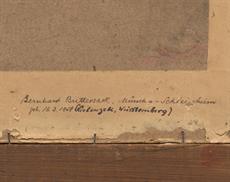 Bernhard Buttersack, Münch - Schleissheim
geb. 16.3.1858 (Liebenzell, Württemberg)